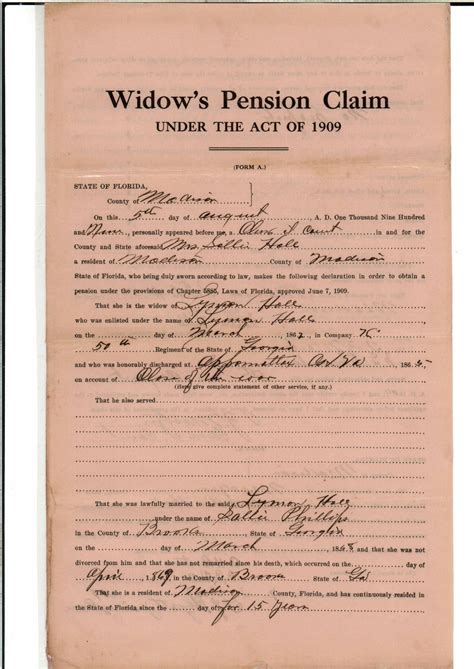 Widow's Pension Claim
UNDER THE ACT OF 1909
(FORM A.)
STATE OF FLORIDA,
County of Madison
On this 5th day of August A. D. One Thousand Nine Hundred
and Nine, personally appeared before me a Clerk of Court in and for the
County and State aforesaid Mrs Sallie Hall
a resident of Madison County of Madison
State of Florida, who being duly sworn according to law, makes the following declaration in order to obtain a
pension under the provisions of Chapter 5885, Laws of Florida, approved June 7, 1909.
That she is the widow of Lymon Hall
who was enlisted under the name of Lymon Hall
on the day of March 1862, in Company K
50th Regiment of the State of Georgia
and who was honorably discharged at Appomattox Va 1865
on account of Close of the war
(Here give complete statement of other service, if any.)
That he also served
That she was lawfully married to the said Lymon Hall
under the name of Sallie Phillips
in the County of Brooks State of Georgia
on the day of March 1868 and that she was not
divorced from him and that she has not remarried since his death, which occurred on the day of
April 1869 in the County of State of Ga
That she is a resident of Madison County, Florida, and has continuously resided in
the State of Florida since the day of for 15 years